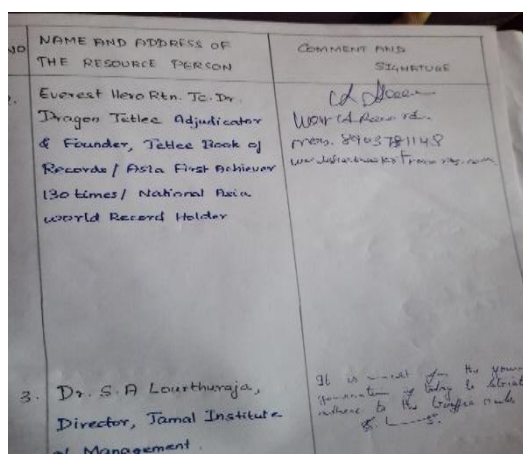 NO
NAME AND ADDRESS OF
THE RESOURCE PERSON
COMMENT AND
SIGNATURE
Everest Hero Rtn. Tc. Dr.
Dragon Tetlee Adjudicator
& Founder, Tetlee Book of
Records / Asia First Achiever
130 times / National Asia
world Record Holder
World Record.
mob. 8903781148
3. Dr. S. A Lourthuraja,
Director, Jamal Institute
of Management.
It is for the young
generation of today to
adhere to the traffic rules